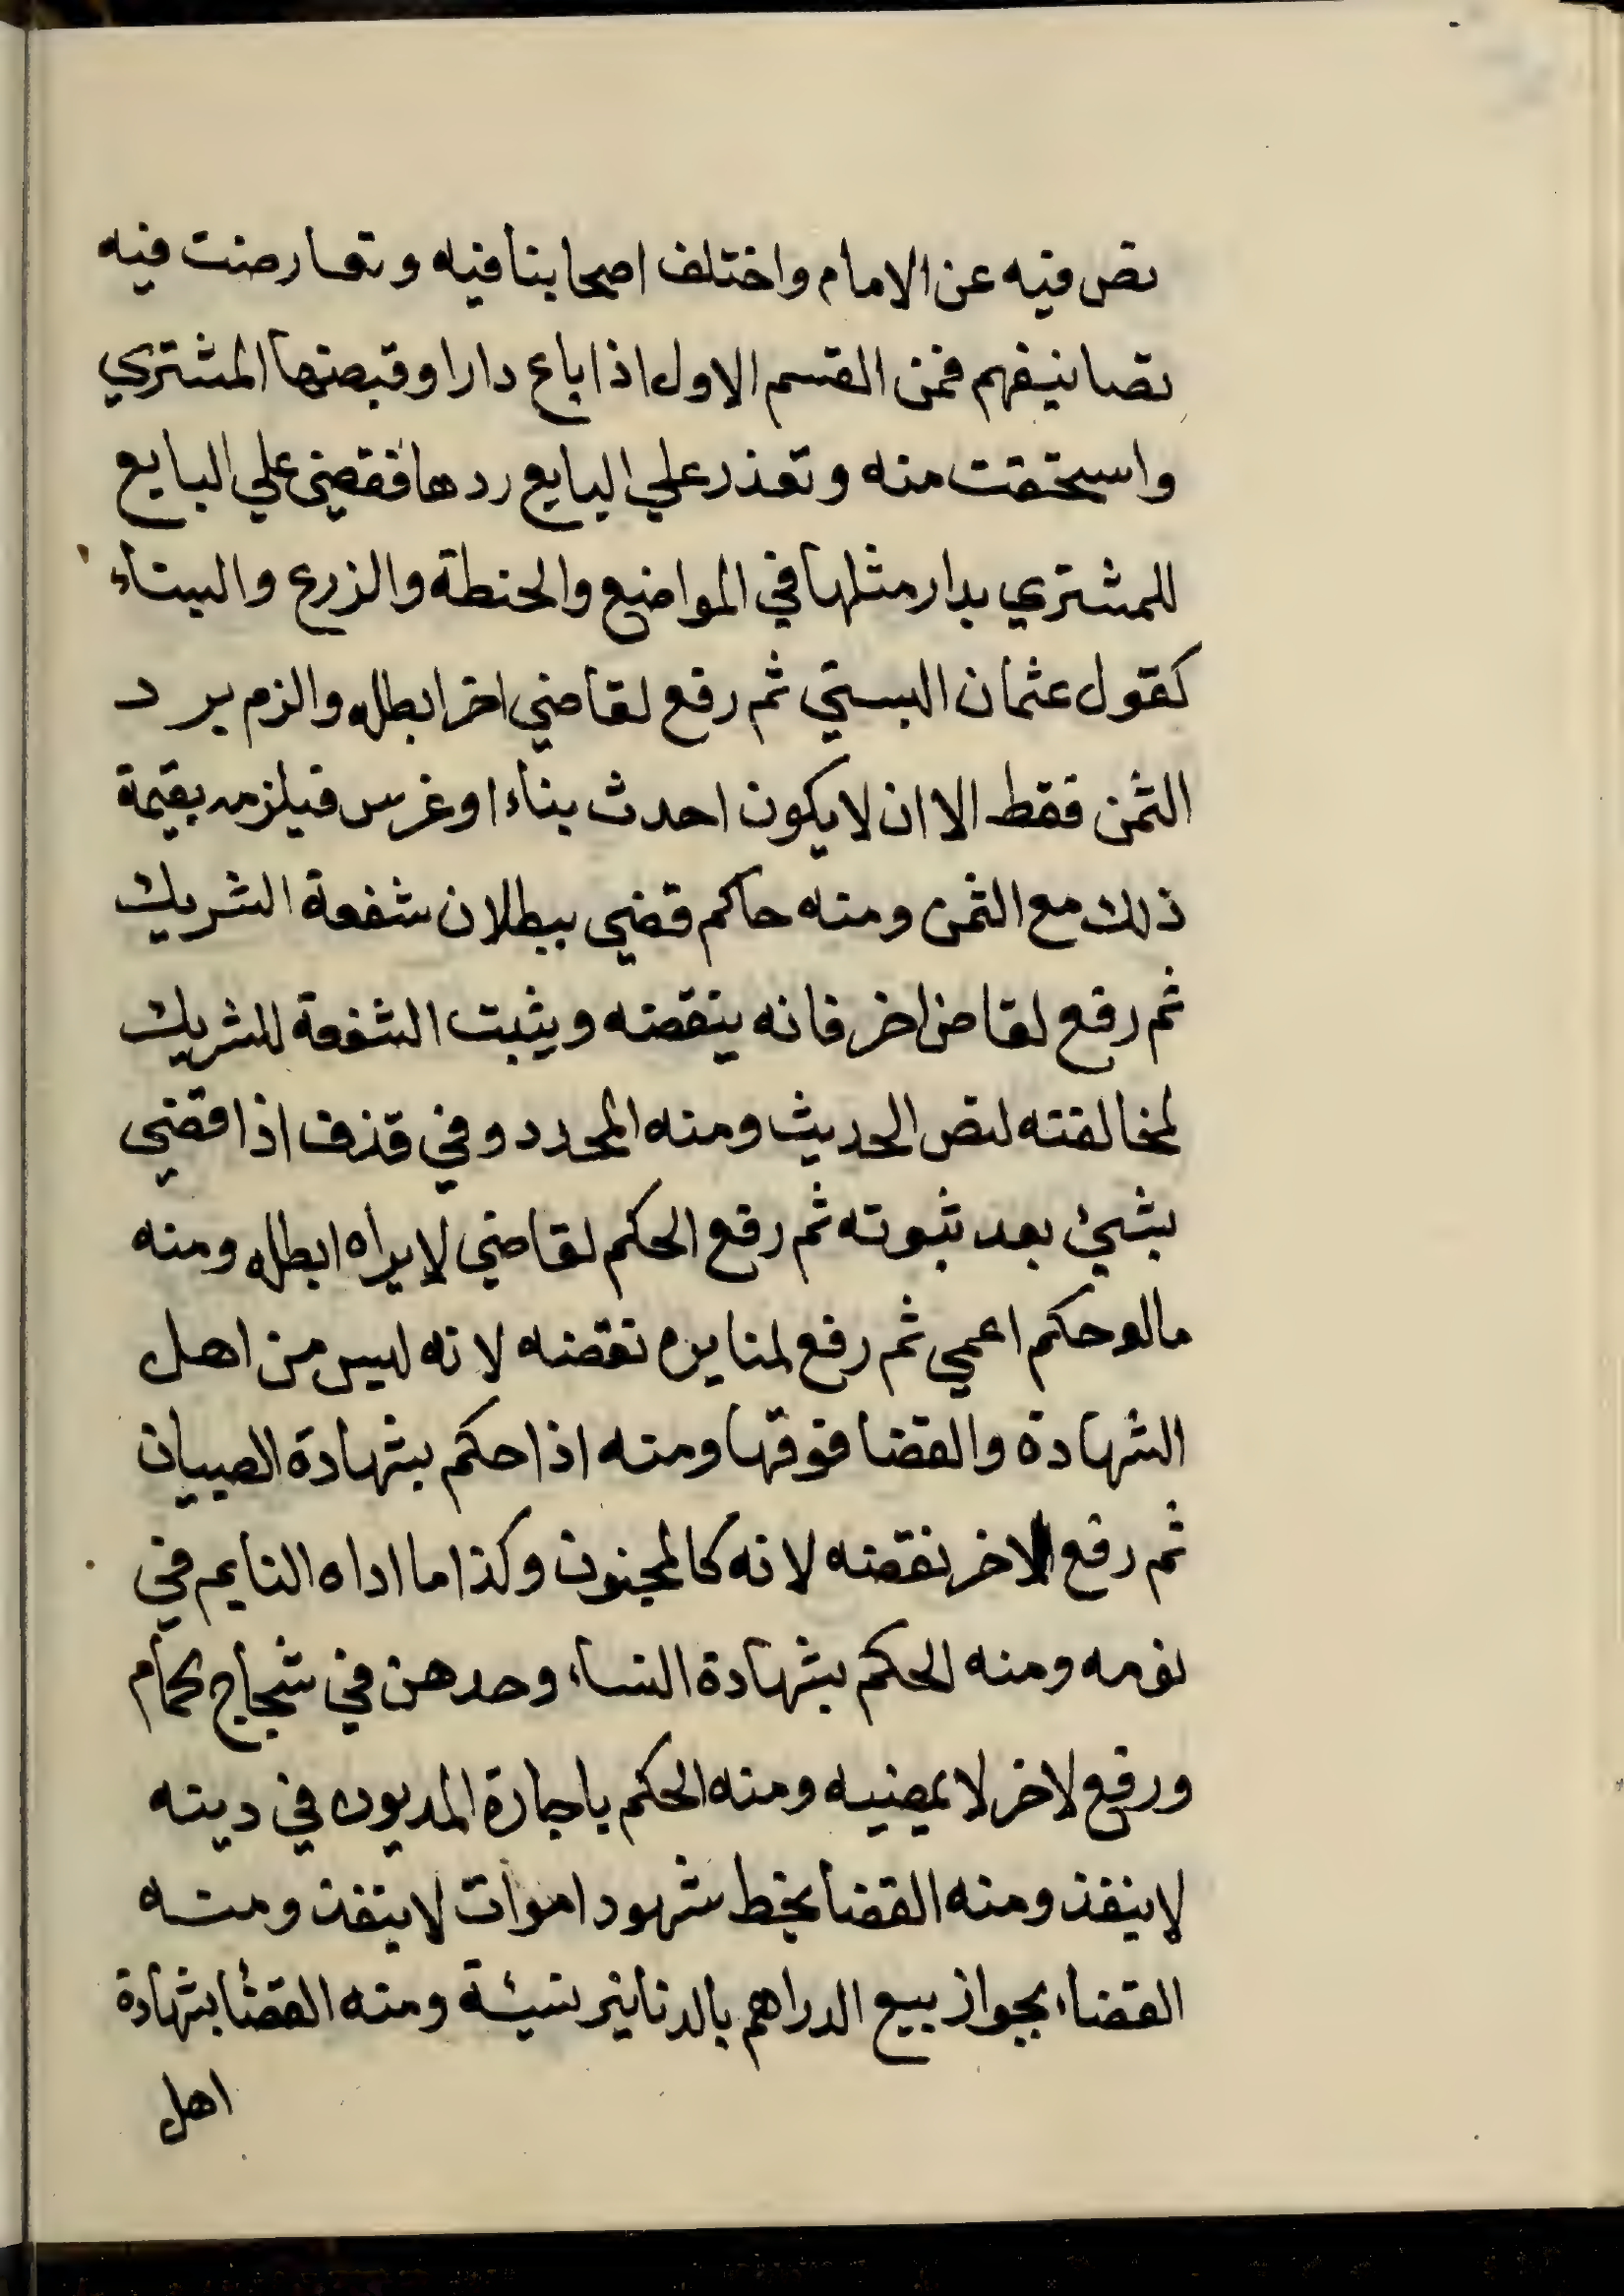 نص فيه عن الامام واختلف اصحابنا فيه وتعارضت فيه
تصانيفهم فمن القسم الاول اذا باع دارا وقبضها المشتري
واستحقت منه وتعذر علي البايع ردها فقضى علي البايع
للمشتري بدار مثلها في المواضع والحنطة والزرع والبناء
كقول عثمان البستي ثم رفع لقاضي اخر ابطله والزم برد
الثمن فقط الا ان لا يكون احدث بناء او غرس فيلزمه بقيمة
ذلك مع الثمن ومنه حاكم قضي ببطلان شفعة الشريك
ثم رفع لقاض اخر فانه ينقضه ويثبت الشفعة للشريك
لمخالفته لنص الحديث ومنه المحدود في قذف اذا قضي
بشيئ بعد ثبوته ثم رفع الحكم لقاضي لا يراه ابطله ومنه
مالو حكم اعمي ثم رفع لمنا يره نقضه لانه ليس من اهل
الشهادة والقضا فوقها ومنه اذا حكم بشهادة الصبيان
ثم رفع لاخر نقضه لانه كالمجنون وكذا ما اداه النايم في
نومه ومنه الحكم بشهادة النساء وحدهن في شجاج لحمام
ورفع لاخر لا يمضيه ومنه الحكم باجارة المديون في دينه
لا ينفذ ومنه القضا بخط شهود اموات لا ينفذ ومنه
القضاء بجواز بيع الدراهم بالدنانير نسيئة ومنه القضئا بشهادة
اهل